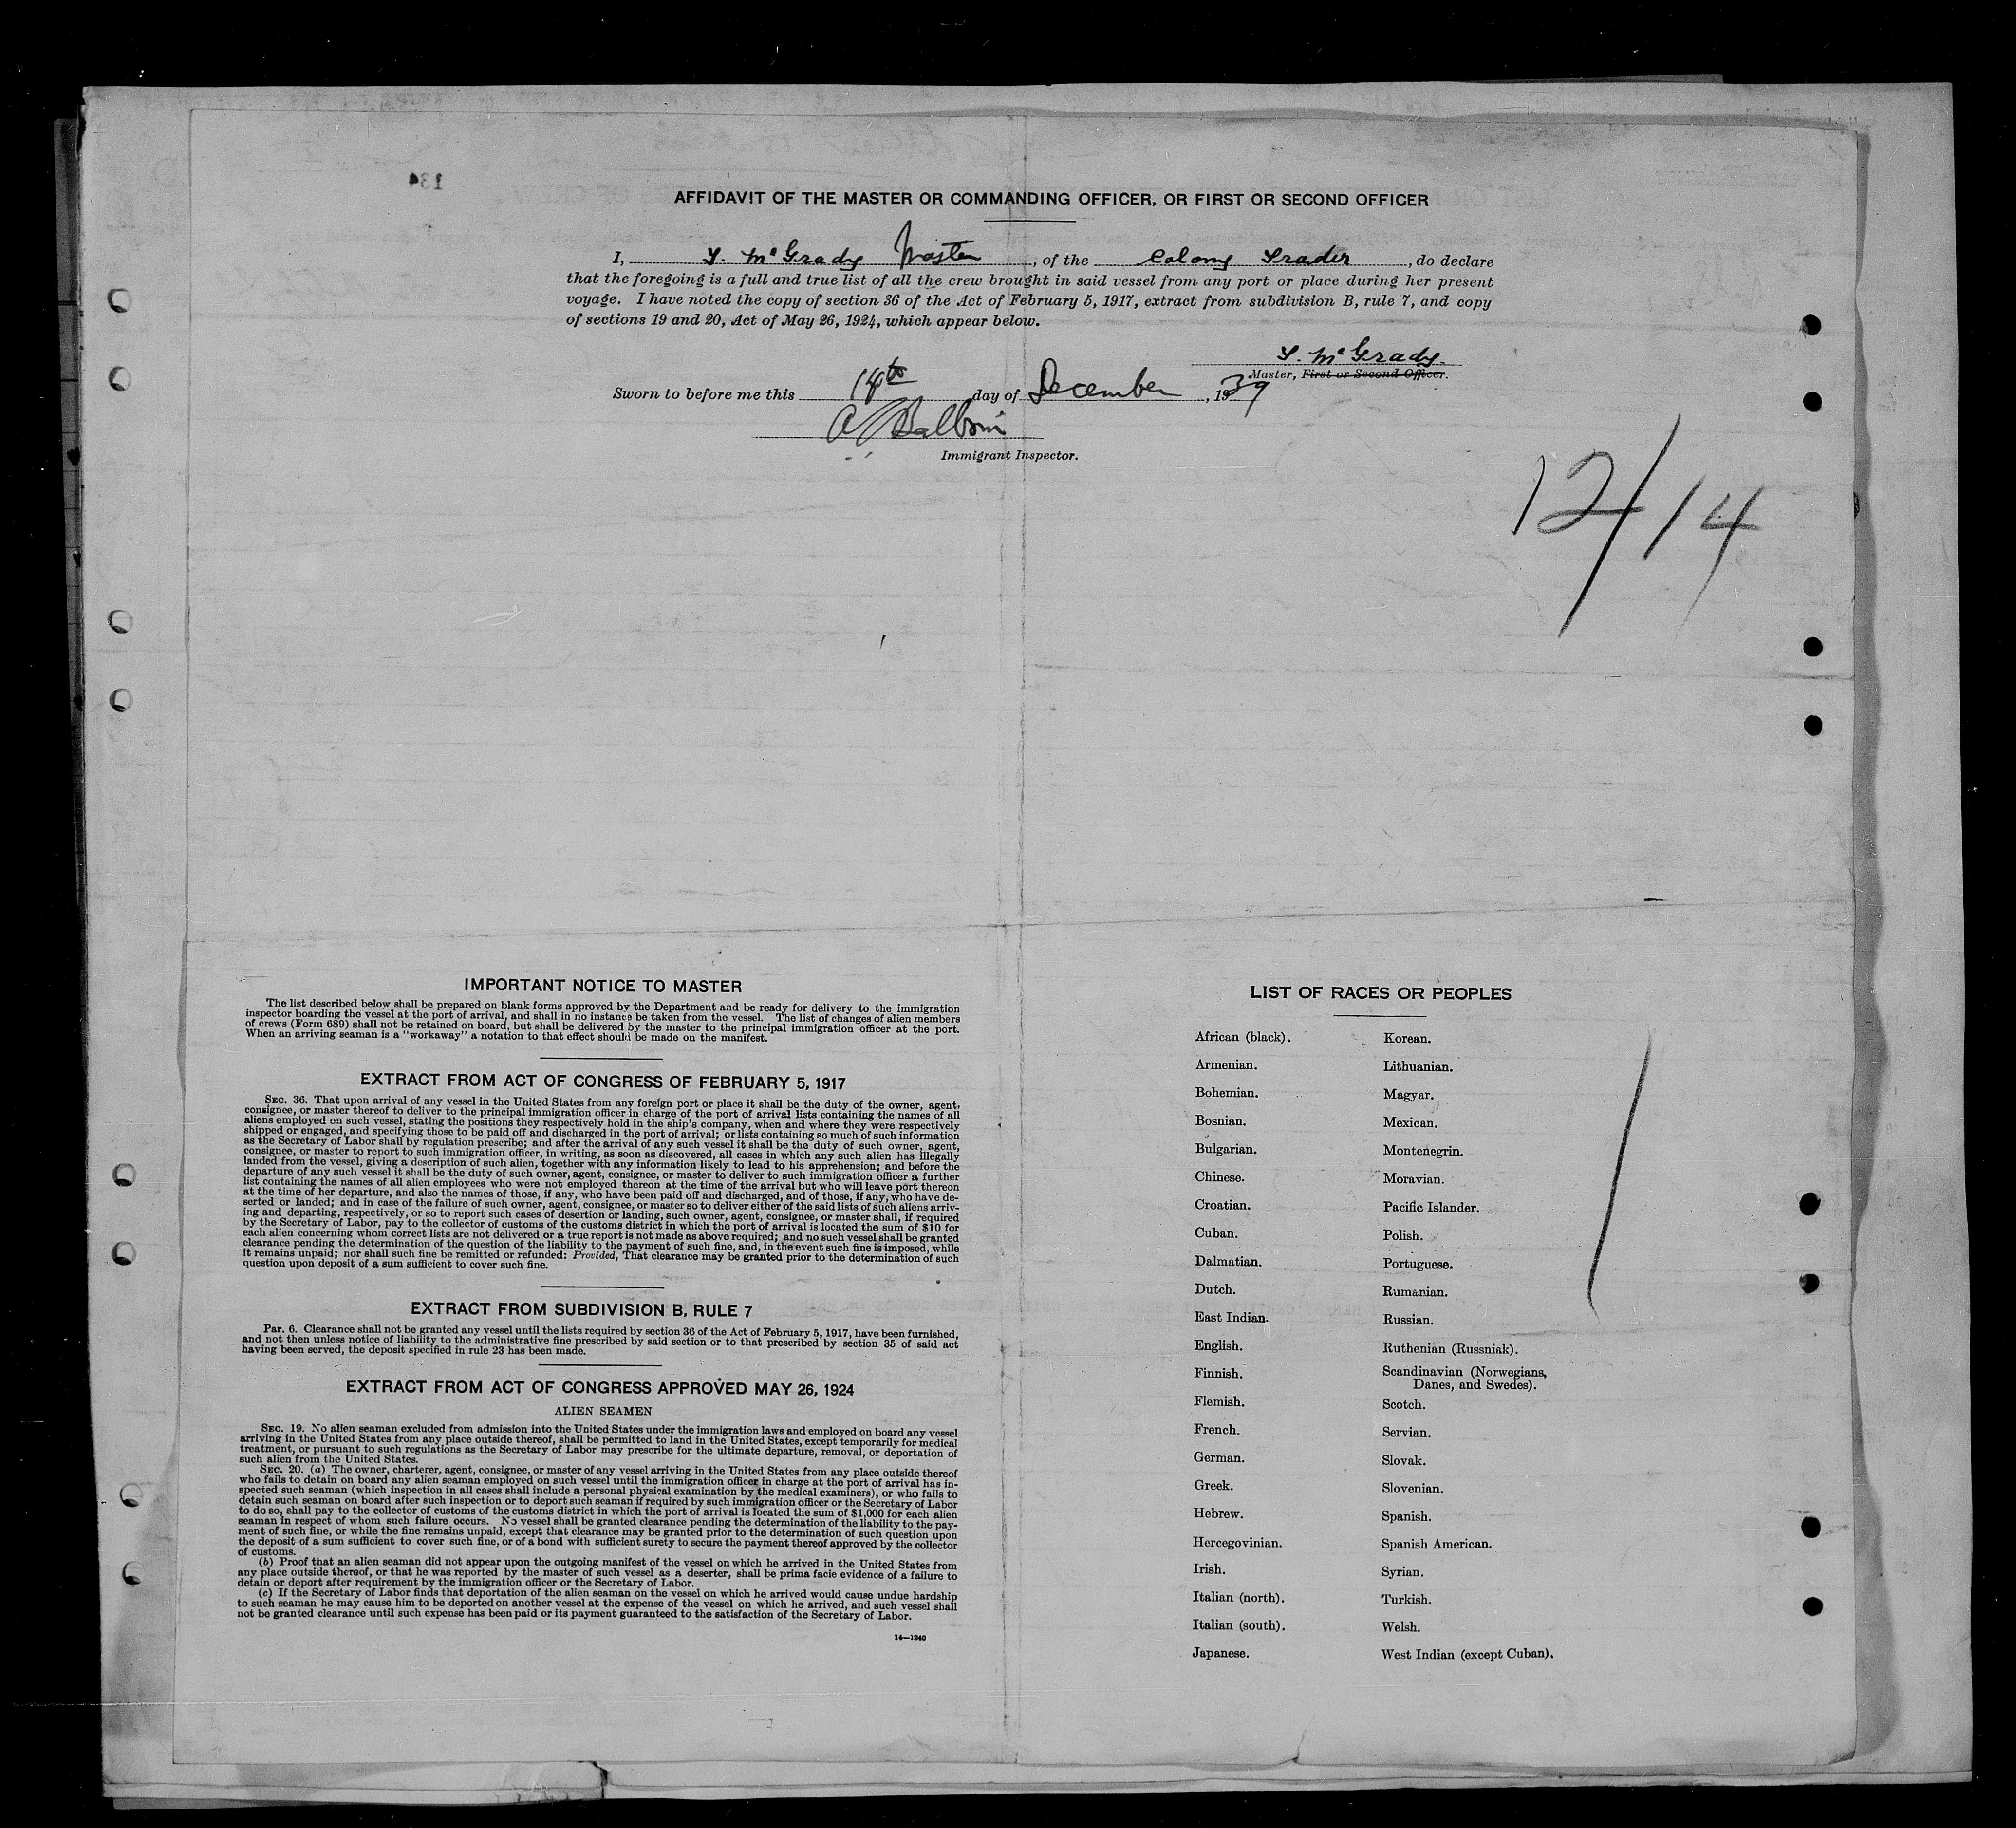 134
AFFIDAVIT OF THE MASTER OR COMMANDING OFFICER, OR FIRST OR SECOND OFFICER
I, S. McGrady Master, of the Colony Trader, do declare
that the foregoing is a full and true list of all the crew brought in said vessel from any port or place during her present
voyage. I have noted the copy of section 36 of the Act of February 5, 1917, extract from subdivision B, rule 7, and copy
of sections 19 and 20, Act of May 26, 1924, which appear below.
S. McGrady.
Master, First or Second Officer.
Sworn to before me this 14th day of December, 1939
Immigrant Inspector.
12/14
IMPORTANT NOTICE TO MASTER
The list described below shall be prepared on blank forms approved by the Department and be ready for delivery to the immigration
inspector boarding the vessel at the port of arrival, and shall in no instance be taken from the vessel. The list of changes of alien members
of crews (Form 689) shall not be retained on board, but shall be delivered by the master to the principal immigration officer at the port.
When an arriving seaman is a "workaway" a notation to that effect should be made on the manifest.
EXTRACT FROM ACT OF CONGRESS OF FEBRUARY 5, 1917
SEC. 36. That upon arrival of any vessel in the United States from any foreign port or place it shall be the duty of the owner, agent,
consignee, or master thereof to deliver to the principal immigration officer in charge of the port of arrival lists containing the names of all
aliens employed on such vessel, stating the positions they respectively hold in the ship's company, when and where they were respectively
shipped or engaged, and specifying those to be paid off and discharged in the port of arrival; or lists containing so much of such information
as the Secretary of Labor shall by regulation prescribe; and after the arrival of any such vessel it shall be the duty of such owner, agent,
consignee, or master to report to such immigration officer, in writing, as soon as discovered, all cases in which any such alien has illegally
landed from the vessel, giving a description of such alien, together with any information likely to lead to his apprehension; and before the
departure of any such vessel it shall be the duty of such owner, agent, consignee, or master to deliver to such immigration officer a further
list containing the names of all alien employees who were not employed thereon at the time of the arrival but who will leave port thereon
at the time of her departure, and also the names of those, if any, who have been paid off and discharged, and of those, if any, who have de-
serted or landed; and in case of the failure of such owner, agent, consignee, or master so to deliver either of the said lists of such aliens arriv-
ing and departing, respectively, or so to report such cases of desertion or landing, such owner, agent, consignee, or master shall, if required
by the Secretary of Labor, pay to the collector of customs of the customs district in which the port of arrival is located the sum of $10 for
each alien concerning whom correct lists are not delivered or a true report is not made as above required; and no such vessel shall be granted
clearance pending the determination of the question of the liability to the payment of such fine, and, in the event such fine is imposed, while
it remains unpaid; nor shall such fine be remitted or refunded: Provided, That clearance may be granted prior to the determination of such
question upon deposit of a sum sufficient to cover such fine.
EXTRACT FROM SUBDIVISION B, RULE 7
PAR. 6. Clearance shall not be granted any vessel until the lists required by section 36 of the Act of February 5, 1917, have been furnished,
and not then unless notice of liability to the administrative fine prescribed by said section or to that prescribed by section 35 of said act
having been served, the deposit specified in rule 23 has been made.
EXTRACT FROM ACT OF CONGRESS APPROVED MAY 26, 1924
ALIEN SEAMEN
SEC. 19. No alien seaman excluded from admission into the United States under the immigration laws and employed on board any vessel
arriving in the United States from any place outside thereof, shall be permitted to land in the United States, except temporarily for medical
treatment, or pursuant to such regulations as the Secretary of Labor may prescribe for the ultimate departure, removal, or deportation of
such alien from the United States.
SEC. 20. (a) The owner, charterer, agent, consignee, or master of any vessel arriving in the United States from any place outside thereof
who fails to detain on board any alien seaman employed on such vessel until the immigration officer in charge at the port of arrival has in-
spected such seaman (which inspection in all cases shall include a personal physical examination by the medical examiners), or who fails to
detain such seaman on board after such inspection or to deport such seaman if required by such immigration officer or the Secretary of Labor
to do so, shall pay to the collector of customs of the customs district in which the port of arrival is located the sum of $1,000 for each alien
seaman in respect of whom such failure occurs. No vessel shall be granted clearance pending the determination of the liability to the pay-
ment of such fine, or while the fine remains unpaid, except that clearance may be granted prior to the determination of such question upon
the deposit of a sum sufficient to cover such fine, or of a bond with sufficient surety to secure the payment thereof approved by the collector
of customs.
(b) Proof that an alien seaman did not appear upon the outgoing manifest of the vessel on which he arrived in the United States from
any place outside thereof, or that he was reported by the master of such vessel as a deserter, shall be prima facie evidence of a failure to
detain or deport after requirement by the immigration officer or the Secretary of Labor.
(c) If the Secretary of Labor finds that deportation of the alien seaman on the vessel on which he arrived would cause undue hardship
to such seaman he may cause him to be deported on another vessel at the expense of the vessel on which he arrived, and such vessel shall
not be granted clearance until such expense has been paid or its payment guaranteed to the satisfaction of the Secretary of Labor.
14—1240
LIST OF RACES OR PEOPLES
African (black).
Armenian.
Bohemian.
Bosnian.
Bulgarian.
Chinese.
Croatian.
Cuban.
Dalmatian.
Dutch.
East Indian.
English.
Finnish.
Flemish.
French.
German.
Greek.
Hebrew.
Hercegovinian.
Irish.
Italian (north).
Italian (south).
Japanese.
Korean.
Lithuanian.
Magyar.
Mexican.
Montenegrin.
Moravian.
Pacific Islander.
Polish.
Portuguese.
Rumanian.
Russian.
Ruthenian (Russniak).
Scandinavian (Norwegians,
Danes, and Swedes).
Scotch.
Servian.
Slovak.
Slovenian.
Spanish.
Spanish American.
Syrian.
Turkish.
Welsh.
West Indian (except Cuban).